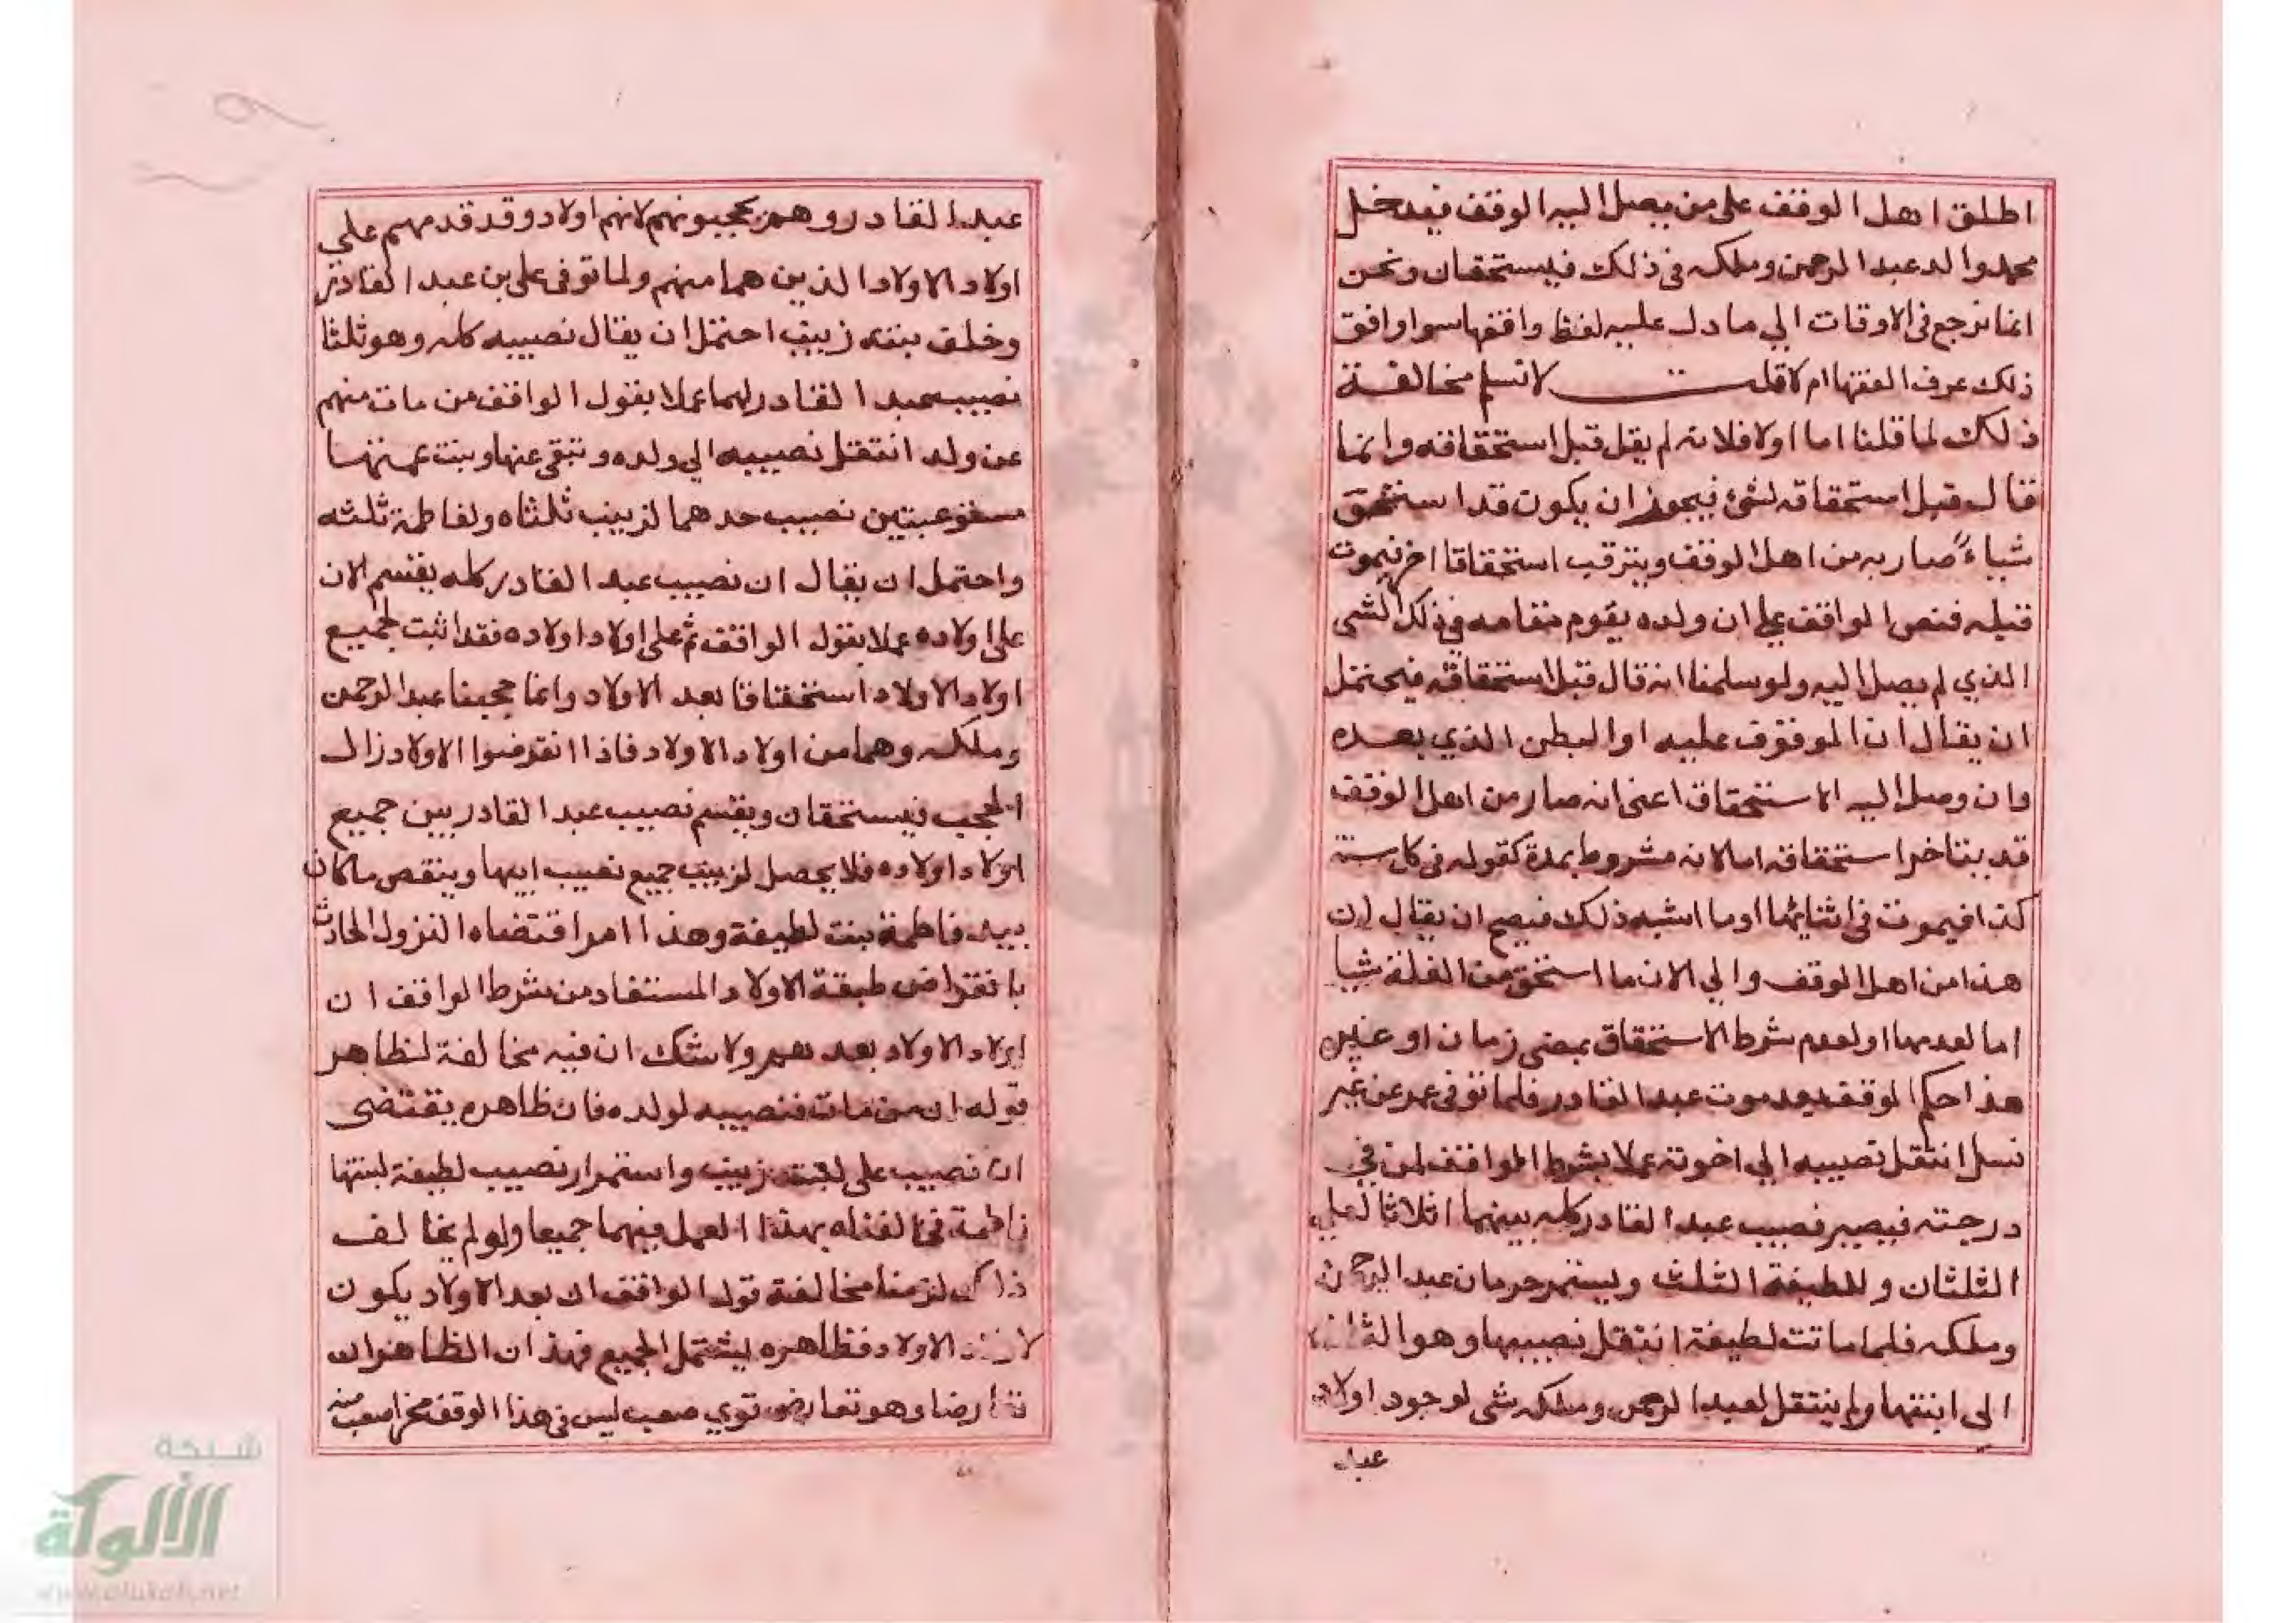 اطلق اهل الوقف على من يصل اليه الوقف فيدخل
محمد والد عبد الرحمن وملكه في ذلك فيستحقان ونحن
انما نرجع في الاوقات الي ما دل عليه لفظ واقفها سوا وافق
ذلك عرف الفقها ام لا قلت لا نسلم مخالفة
ذلك لما قلنا اما اولا فلانه لم يقل قبل استحقاقه وانما
قال قبل استحقاقه لشئ فيجوز ان يكون قد استحق
شياء صار به من اهل الوقف ويترقب استحقاقا اخر فيموت
قبله فنص الواقف على ان ولده يقوم مقامه في ذلك الشي
الذي لم يصل اليه ولو سلمنا انه قال قبل استحقاقه فيحتمل
ان يقال ان الموقوف عليه او البطن الذي بعده
وان وصل اليه الاستحقاق اعنى انه صار من اهل الوقف
قد يتاخر استحقاقه اما لانه مشروط بمدة كقوله في كل سنة
كذا فيموت في اثنايها او ما اشبه ذلك فيصح ان يقال ان
هذا من اهل الوقف والي الان ما استحق من الغلة شيا
اما لعدمها او لعدم شرط الاستحقاق بمضى زمان او غيره
هذا حكم الوقف بعد موت عبد القادر فلما توفى عمر عن غير
نسل انتقل نصيبه الي اخوته عملا بشرط الواقف لمن في
درجته فيصير نصيب عبد القادر كله بينهما اثلاثا لعلي
الثلثان وللطيفة الثلث ويستمر حرمان عبد الرحمن
وملكه فلما ماتت لطيفة انتقل نصيبها وهو الثلث
الى ابنتها ولم ينتقل لعبد الرحمن وملكه شى لوجود اولاد
عبد
عبد القادر وهم يحجبونهم لانهم اولاد وقد قدمهم على
اولاد الاولاد الذين هما منهم ولما توفى على بن عبد القادر
وخلف بنته زينب احتمل ان يقال نصيبه كله وهو ثلثا
نصيب عبد القادر لهما عملا بقول الواقف من مات منهم
عن ولد انتقل نصيبه الي ولده وتبقى عنها وبنت عمتها
نصيب جدهما لزينب ثلثاه ولفاطمة ثلثه
واحتمل ان يقال ان نصيب عبد القادر كله يقسم الان
على اولاده عملا بقول الواقف ثم على اولاد اولاده فقد اثبت لجميع
اولاد الاولاد استحقاقا بعد الاولاد وانما حجبنا عبد الرحمن
وملكه وهما من اولاد الاولاد فاذا انقرضوا الاولاد زال
الحجب فيستحقان ويقسم نصيب عبد القادر بين جميع
اولاد اولاده فلا يحصل لزينب جميع نصيب ابيها وينقص ما كان
بيد فاطمة بنت لطيفة وهذا امر اقتضاه النزول الحادث
بانقراض طبقة الاولاد المستفاد من شرط الواقف ان
اولاد الاولاد بعدهم ولا شك ان فيه مخالفة لظاهر
قوله ان من مات فنصيبه لولده فان ظاهره يقتضى
ان نصيب على لبنته زينب واستمرار نصيب لطيفة لبنتها
فاطمة فخالفناه بهذا العمل فيهما جميعا ولو لم يخالف
ذلك لزمنا مخالفة قول الواقف ان بعد الاولاد يكون
لاولاد الاولاد فظاهره يشتمل الجميع فهذان الظاهران
تعارضا وهو تعارض قوي صعب ليس في هذا الوقف محز اصعب منه
شبكة
الألوكة
www.alukah.net